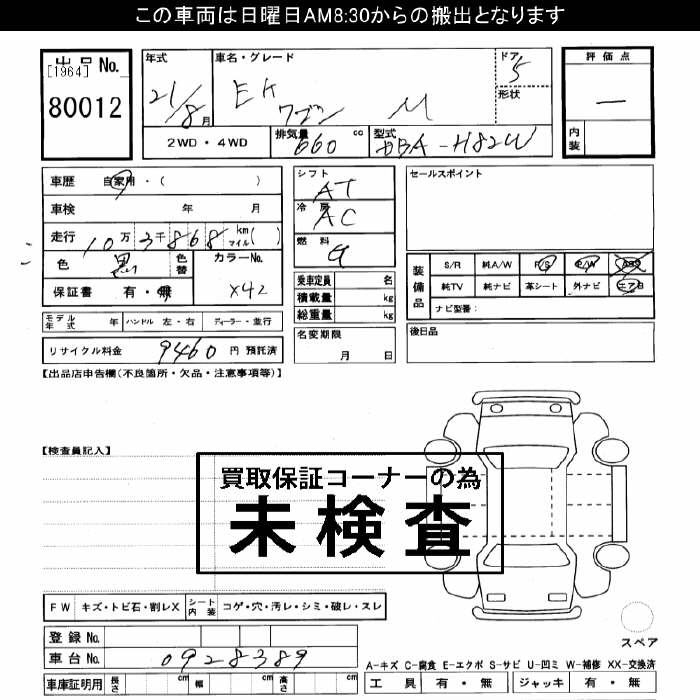 この車両は日曜日AM8:30からの搬出となります
出品 No.
[1964]
80012
年式
21/8月
車名・グレード
EK ワゴン M
ドア 5
形状
評価点
—
内装
2WD・4WD
排気量 660 cc
型式 DBA-H82W
車歴 自家用・( )
車検 年 月
走行 10万3千868 km マイル( )
色 黒 色替 カラーNo.
保証書 有・無 X42
モデル年式 年 ハンドル 左・右 ディーラー・並行
リサイクル料金 9460 円 預託済
シフト AT
冷房 AC
燃料 G
乗車定員 名
積載量 kg
総重量 kg
名変期限
月 日
セールスポイント
装備品 S/R 純A/W P/S P/W ABS
純TV 純ナビ 革シート 外ナビ エアB
ナビ型番:
後日品
【出品店申告欄(不良箇所・欠品・注意事項等)】
【検査員記入】
買取保証コーナーの為
未検査
FW キズ・トビ石・割レX シート内装 コゲ・穴・汚レ・シミ・破レ・スレ
登録 No.
車台 No. 0928389
車庫証明用 長さ cm 幅 cm 高さ cm
スペア
A-キズ C-腐食 E-エクボ S-サビ U-凹ミ W-補修 XX-交換済
工具 有・無 ジャッキ 有・無